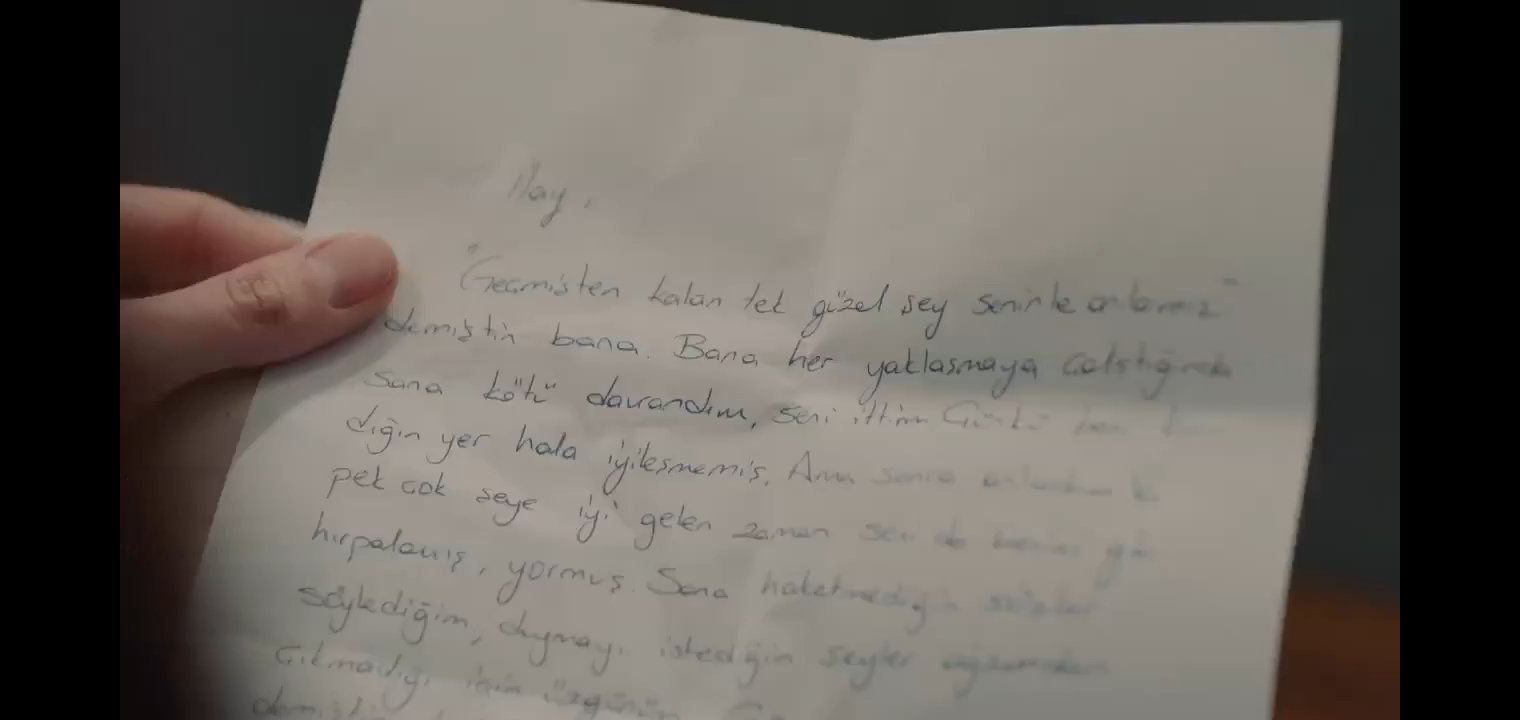 İlay,
"Geçmişten kalan tek güzel şey seninle anılarımız"
demiştin bana. Bana her yaklaşmaya çalıştığında
sana kötü davrandım, seni ittim
dığın yer hala iyileşmemiş. Ama sonra anladım ki
pek çok şeye iyi gelen zaman seni de benim gibi
hırpalamış, yormuş. Sana haketmediğin sözler
söylediğim, duymayı istediğin şeyler ağzımdan
çıkmadığı için üzgünüm
demiştin